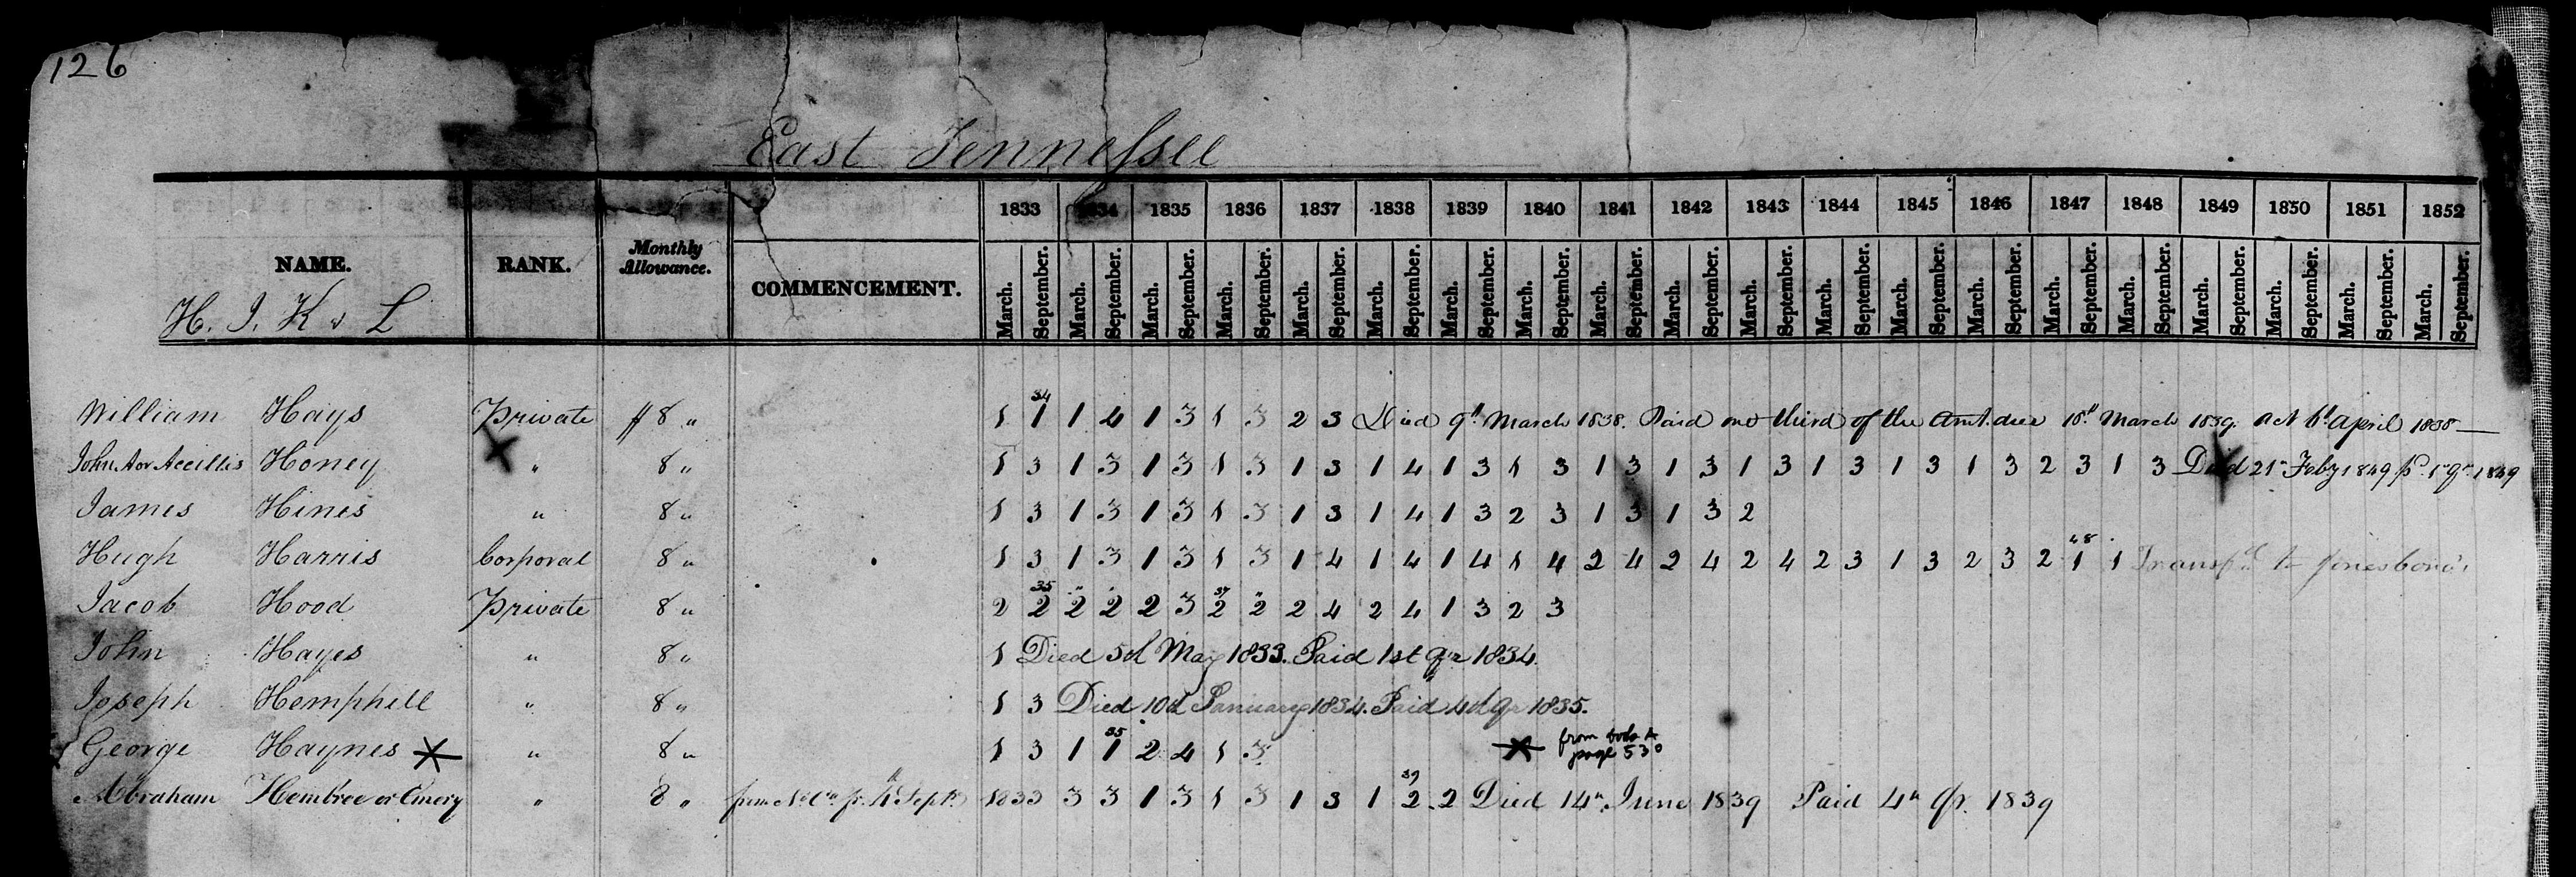 126
East Tennessee
1833 1834 1835 1836 1837 1838 1839 1840 1841 1842 1843 1844 1845 1846 1847 1848 1849 1850 1851 1852
NAME. RANK. Monthly Allowance. COMMENCEMENT. March. September. March. September. March. September. March. September. March. September. March. September. March. September. March. September. March. September. March. September. March. September. March. September. March. September. March. September. March. September. March. September. March. September. March. September. March. September. March. September.
H. I. K & L
34
William Hays Private $ 8 " 1 1 1 4 1 3 1 3 2 3 Died 9th March 1838. Paid one third of the amt. due 18th March 1839. act 6th April 1838
John A or Accillis Honey " 8 " 1 3 1 3 1 3 1 3 1 3 1 4 1 3 1 3 1 3 1 3 1 3 1 3 1 3 1 3 2 3 1 3 Died 21st Feby 1849 pd 1st qr 1849
James Hines " 8 " 1 3 1 3 1 3 1 3 1 3 1 4 1 3 2 3 1 3 1 3 2
48
Hugh Harris Corporal 8 " 1 3 1 3 1 3 1 3 1 4 1 4 1 4 1 4 2 4 2 4 2 4 2 3 1 3 2 3 2 1 1 Transfd to Jonesboro'
35 " " 37 "
Jacob Hood Private 8 " 2 2 2 2 2 3 2 2 2 4 2 4 1 3 2 3
John Hayes " 8 " 1 Died 5d May 1833. Paid 1st qr 1834.
Joseph Hemphill " 8 " 1 3 Died 10d January 1834. Paid 4d qr 1835.
35
George Haynes * " 8 " 1 3 1 1 2 4 1 3 * from book A page 530
39
Abraham Hembree or Emery " 8 " from No Ca fr. 4th Sept. 1833 3 3 1 3 1 3 1 3 1 2 2 Died 14th June 1839 Paid 4th Qr. 1839